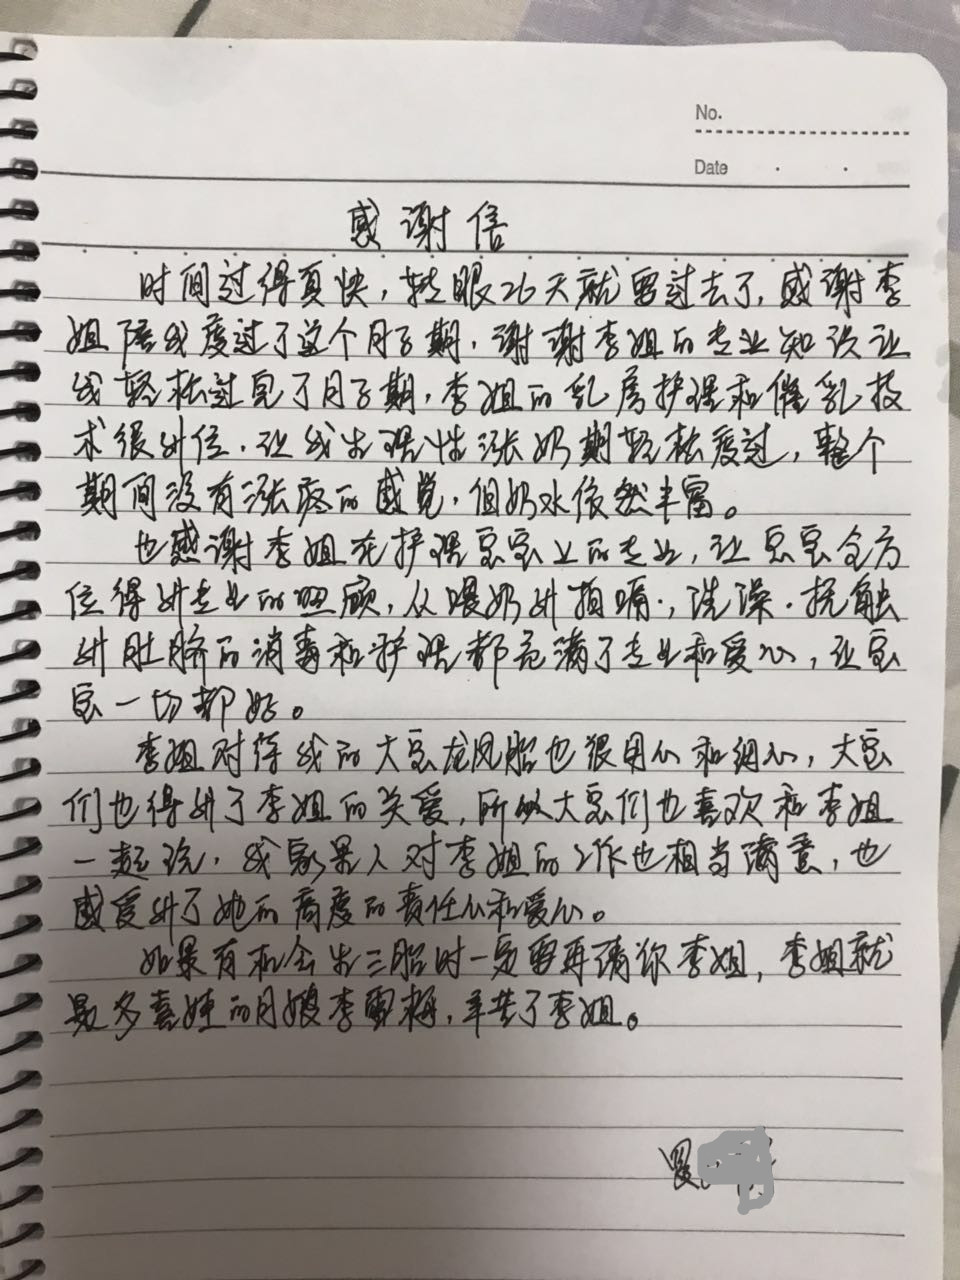 No.
Date
感谢信
时间过得真快，转眼26天就要过去了，感谢李
姐陪我度过了这个月子期，谢谢李姐的专业知识让
我轻松过完了月子期，李姐的乳房护理和催乳技
术很到位，让我生理性涨奶期轻松度过，整个
期间没有涨疼的感觉，但奶水依然丰富。
也感谢李姐在护理豆豆上的专业，让豆豆全方
位得到专业的照顾，从喂奶到拍嗝，洗澡．抚触
到肚脐的消毒和护理都充满了专业和爱心，让豆
豆一切都好。
李姐对待我的大豆龙凤胎也很用心和细心，大豆
们也得到了李姐的关爱，所以大豆们也喜欢和李姐
一起玩，我家里人对李姐的工作也相当满意，也
感受到了她的高度的责任心和爱心。
如果有机会生三胎时一定要再请你李姐，李姐就
是多喜娃的月嫂李雪梅，辛苦了李姐。